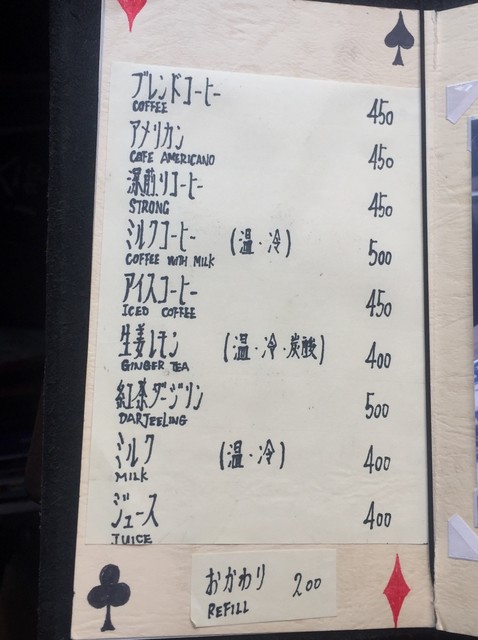 ブレンドコーヒー 450
COFFEE
アメリカン 450
CAFE AMERICANO
深煎りコーヒー 450
STRONG
ミルクコーヒー (温・冷) 500
COFFEE WITH MILK
アイスコーヒー 450
ICED COFFEE
生姜レモン (温・冷・炭酸) 400
GINGER TEA
紅茶ダージリン 500
DARJEELING
ミルク (温・冷) 400
MILK
ジュース 400
JUICE
おかわり 200
REFILL